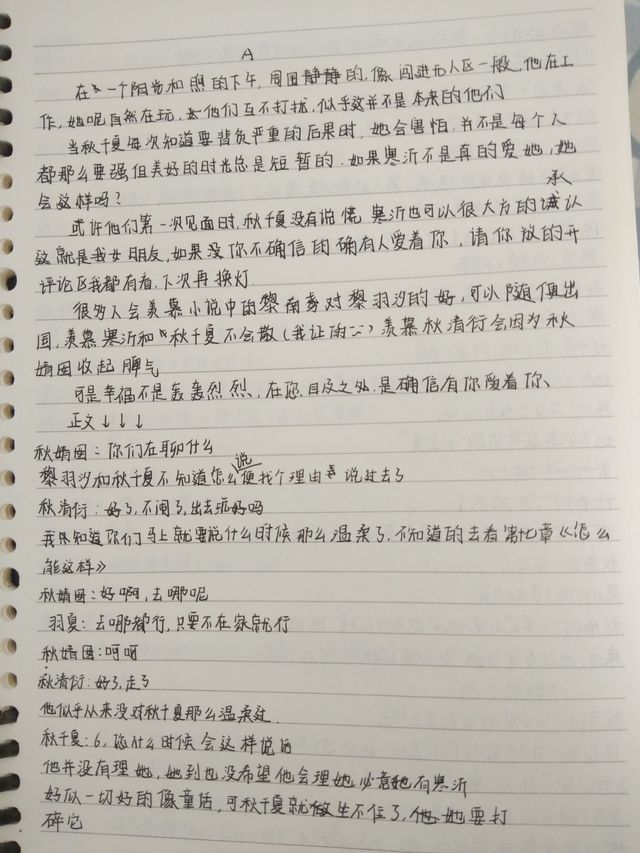 A
在一个阳光和照的下午,周围静静的,像闯进无人区一般,他在工
作,她呢自然在玩,他们互不打扰,似乎这并不是本来的他们
当秋千夏每次知道要背负严重的后果时,她会害怕,并不是每个人
都那么要强,但美好的时光总是短暂的.如果寒沂不是真的爱她,她
会这样吗?
或许他们第一次见面时,秋千夏没有说慌,寒沂也可以很大方的承认
这就是我女朋友,如果没你不确信的确有人爱着你,请你放的开
评论区我都有看,下次再换灯.
很多人会羡慕小说中的黎南 对黎羽汐的好,可以随便出
国,羡慕寒沂和秋千夏不会散(我证的)羡慕秋清衍会因为秋
婧囡收起脾气
可是幸福不是轰轰烈烈、在您目及之处.是确信有你爱着你、
正文↓↓↓
秋婧囡:你们在聊什么
黎羽汐和秋千夏不知道怎么说便找个理由 说过去了
秋清衍:好了,不闹了,出去玩好吗
我只知道你们马上就要说什么时候那么温柔了.不知道的去看第 章《怎么
能这样》
秋婧囡:好啊,去哪呢
羽夏:去哪都行,只要不在家就行
秋婧囡:呵呵
秋清衍:好了,走了
他似乎从来没对秋千夏那么温柔过.
秋千夏:6,您什么时候会这样说话
他并没有理她,她到也没希望他会理她,必意她有寒沂
好似一切好的像童话,可秋千夏就 坐不住了,她要打
碎它